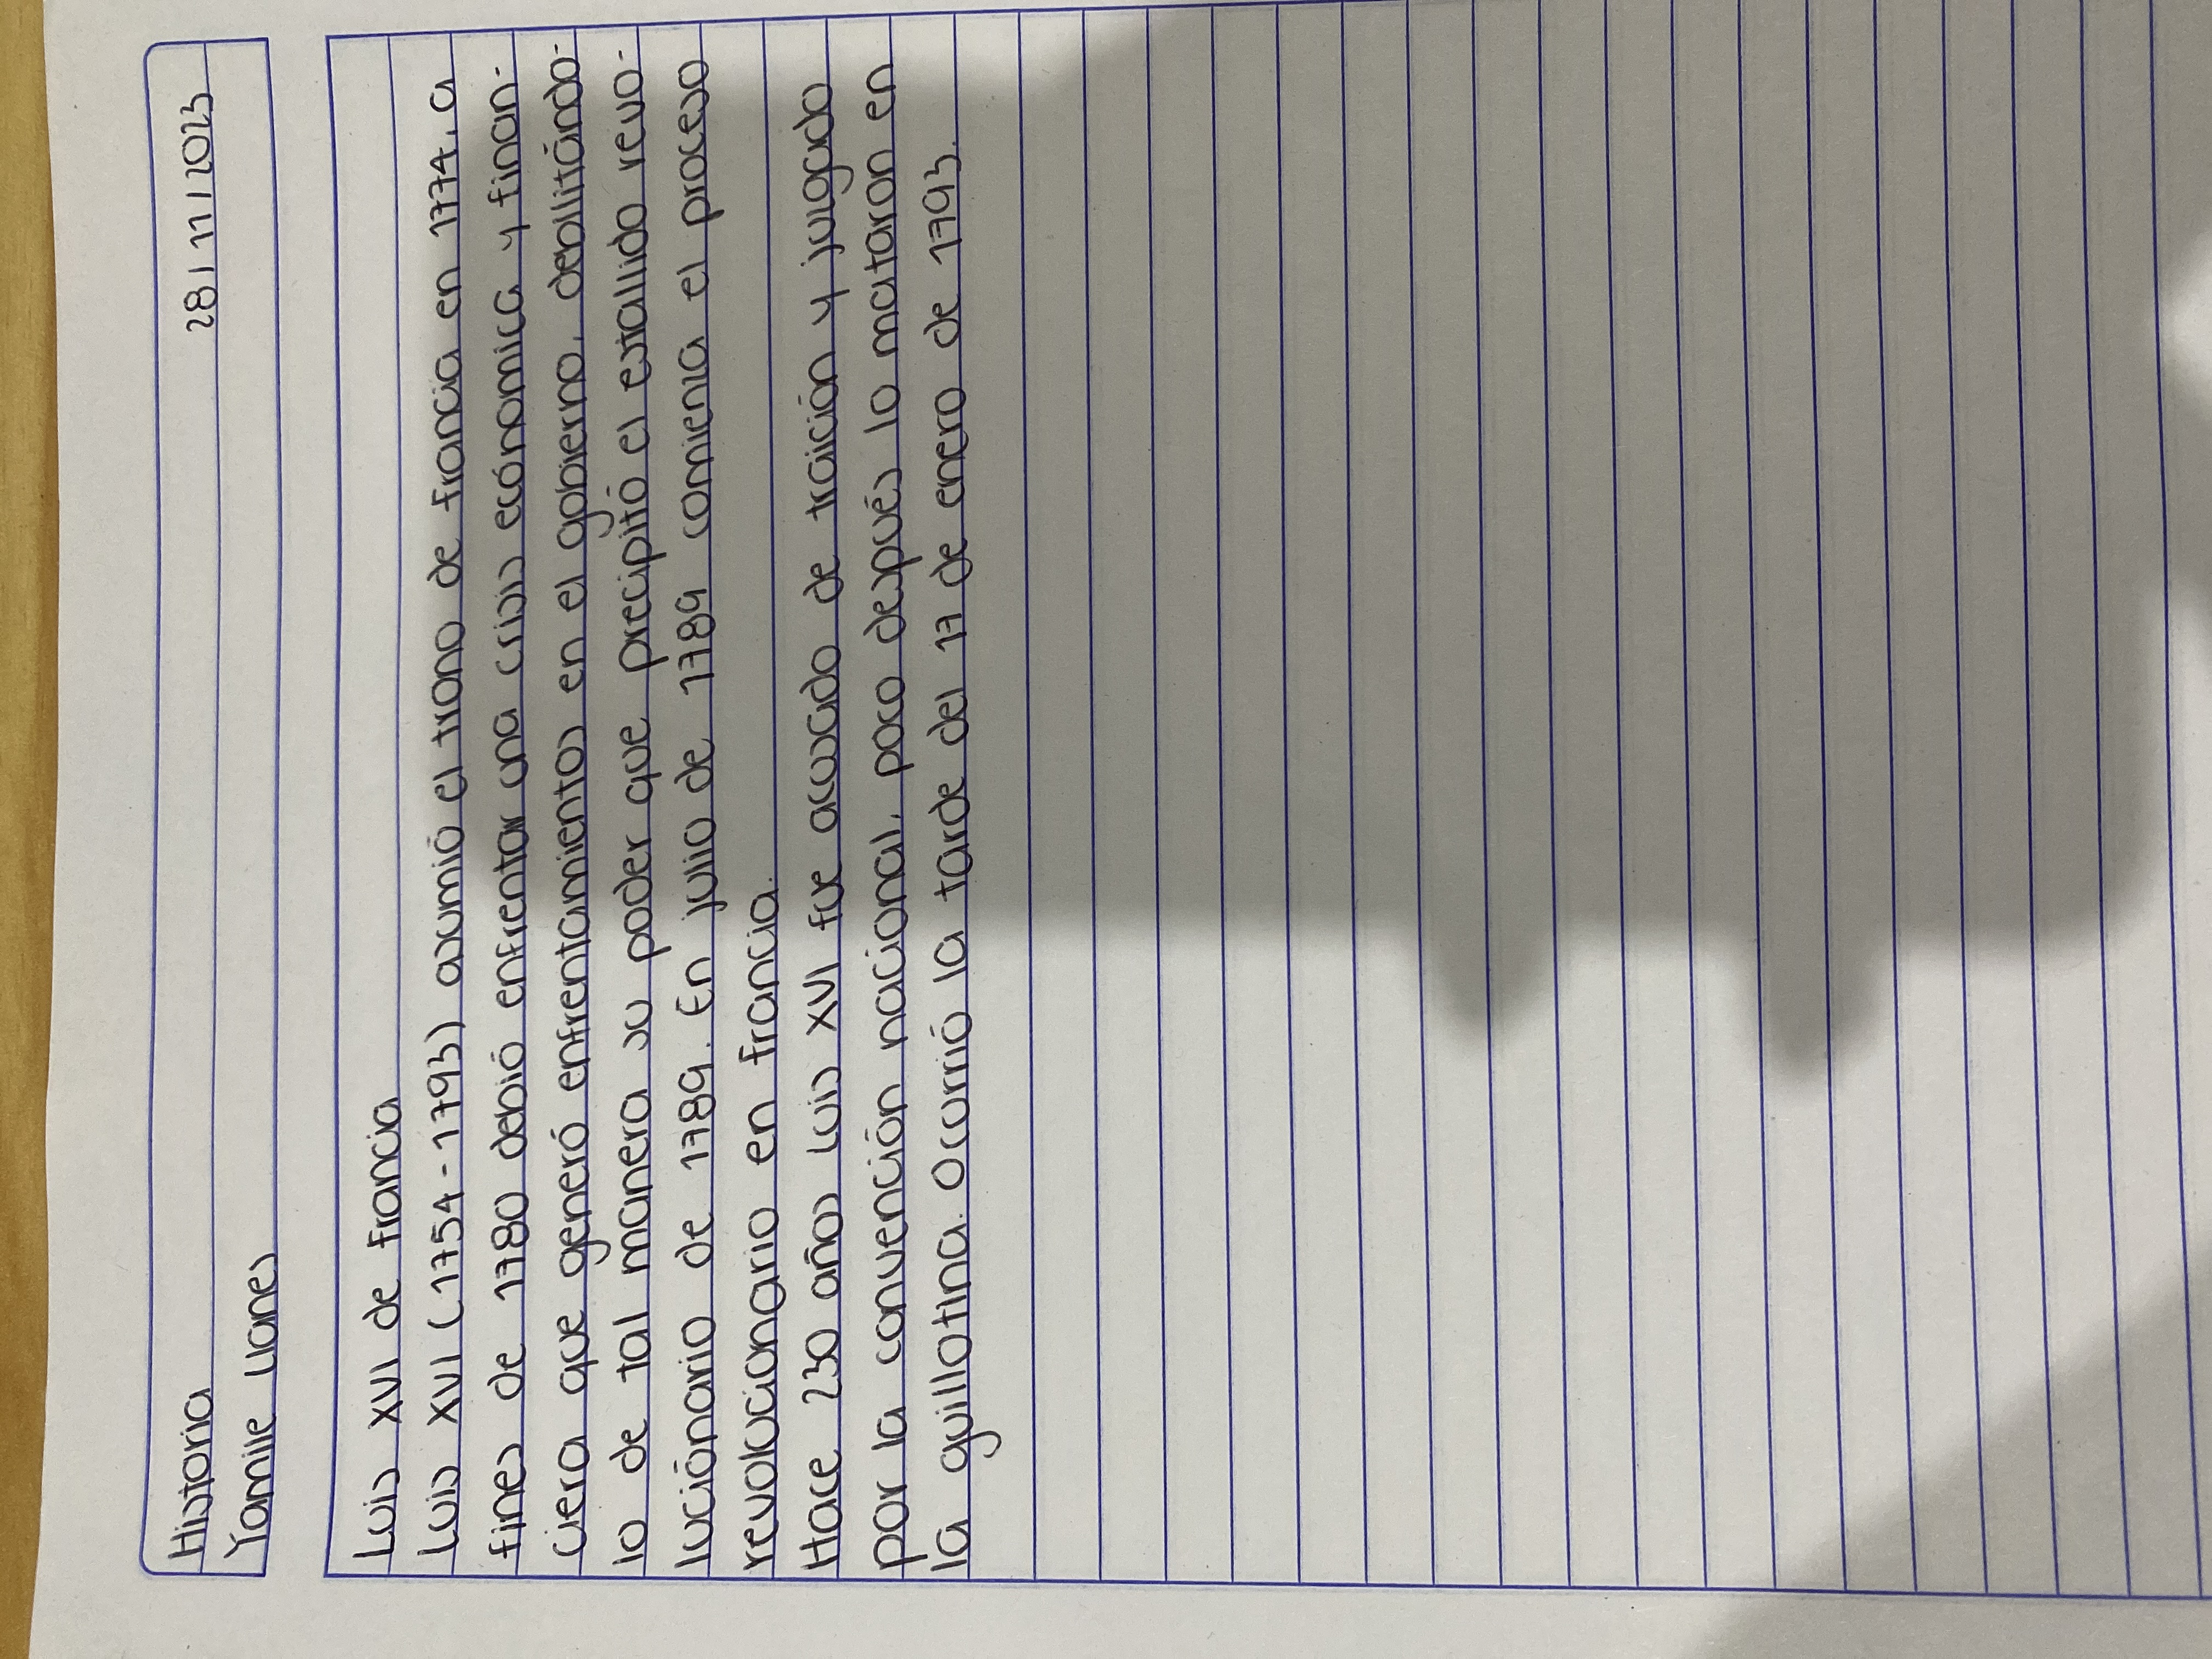 Historia 28/11/2023
Yamile Llanes
Luis XVI de francia
Luis XVI (1754-1793) asumió el trono de francia en 1774, a
fines de 1780 debió enfrentar una crisis ecónomica y finan-
ciera que generó enfrentamientos en el gobierno, debilitándo-
lo de tal manera su poder que precipitó el estallido revo-
luciónario de 1789. En julio de 1789 comienza el proceso
revolucionario en francia.
Hace 230 años Luis XVI fue acusado de traición y juzgado
por la convención nacional, poco después lo mataron en
la guillotina. Ocurrió la tarde del 17 de enero de 1793.